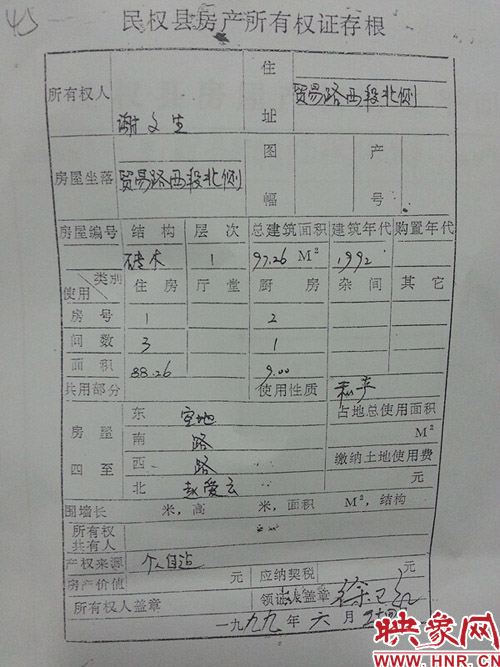 45
民权县房产所有权证存根
所有权人 谢文生 住址 贸易路西段北侧
房屋坐落 贸易路西段北侧 图幅 产号
房屋编号 结构 层次 总建筑面积 建筑年代 购置年代
砖木 1 97.26 M² 1992
类别 使用 住房 厅堂 厨房 杂间 其它
房号 1 2
间数 3 1
面积 88.26 9.00
共用部分 使用性质 私产
房屋四至 东 空地 占地总使用面积
南 路 M²
西 路 缴纳土地使用费
北 赵爱云 元
围墙长 米，高 米，面积 M²，结构
所有权共有人
产权来源 个人自造
房产价值 元 应纳契税 元
所有权人盖章 领证人盖章 徐
一九九九年六月
映象网
WWW.HNR.CN